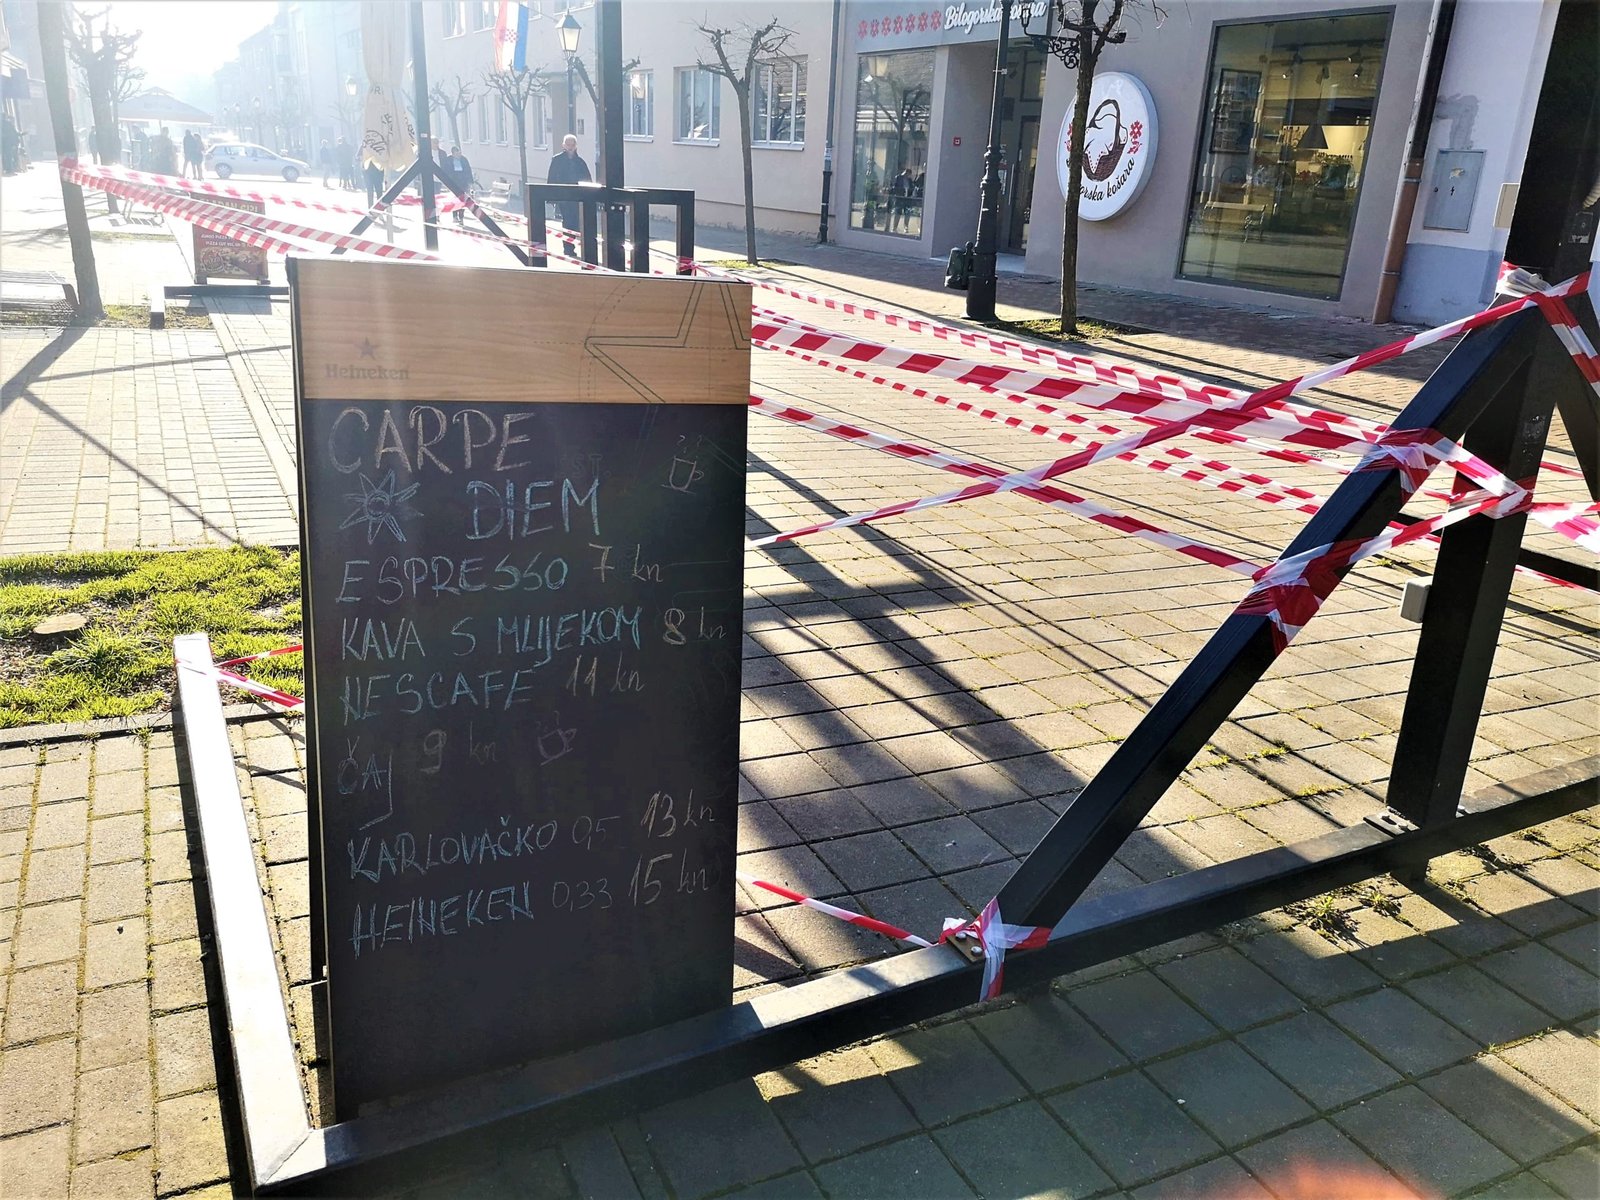 Bilogorska košara
orska košara
Heineken
CARPE
DIEM
ESPRESSO 7 kn
KAVA S MLIJEKOM 8 kn
NESCAFE 11 kn
ČAJ 9 kn
KARLOVAČKO 0,5 13 kn
HEINEKEN 0,33 15 kn